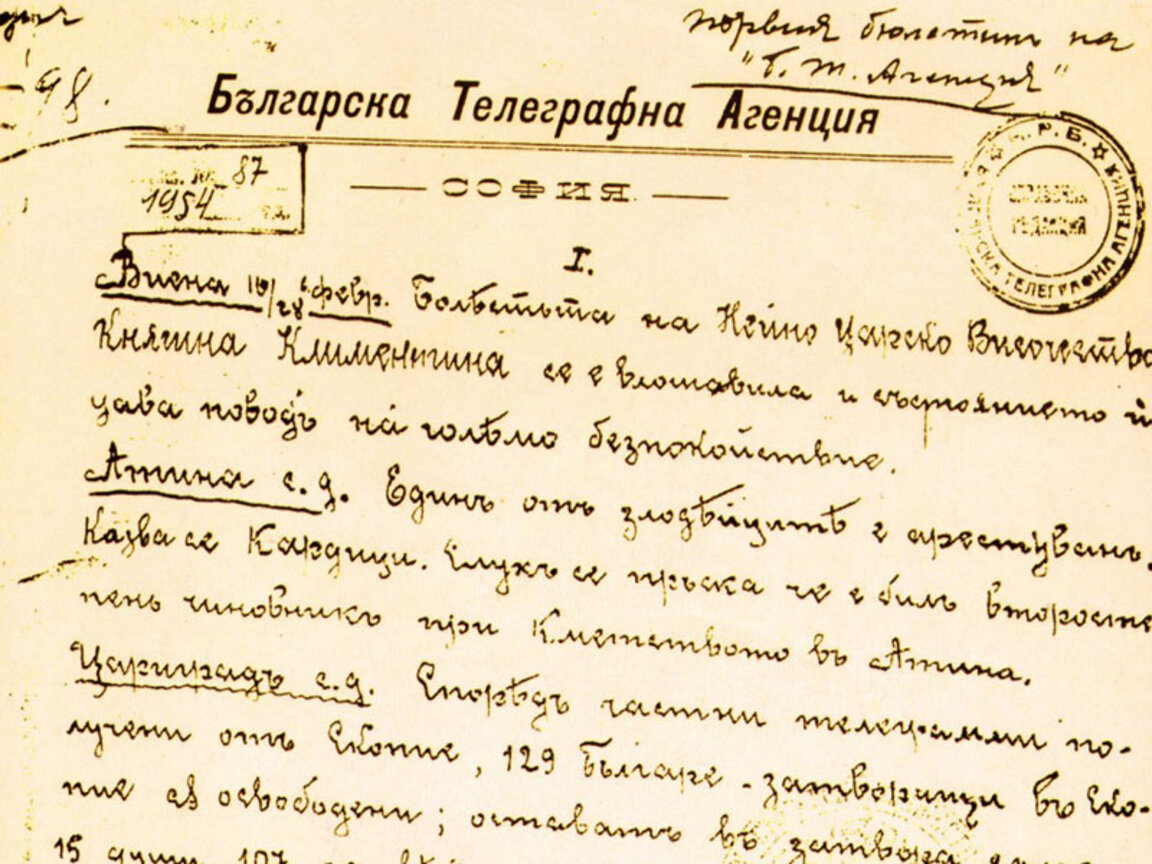 първия бюлетин на
98.
"Б. т. Агенция"
Българска Телеграфна Агенция
87
1954
СОФИЯ.
СПРАВОЧНА
РЕДАКЦИЯ
ТЕЛЕГРАФНА АГЕНЦИЯ
I.
Виена 16/28 февр. Болѣстьта на Нейно Царско Височество
Княгина Климентина се е влошавила и състоянието ѝ
дава поводъ на голѣмо безпокойствие.
Атина с. д. Единъ отъ злодѣйцитѣ е арестуванъ.
Казва се Кардици. Слухъ се пръска че е билъ второсте
пенъ чиновникъ при Кметството въ Атина.
Цариградъ с. д. Спорѣдъ частни телеграмми по-
лучени отъ Скопие, 129 Българе - затворници въ Ско-
пие сѫ освободени; оставатъ въ затвора
15 души 107